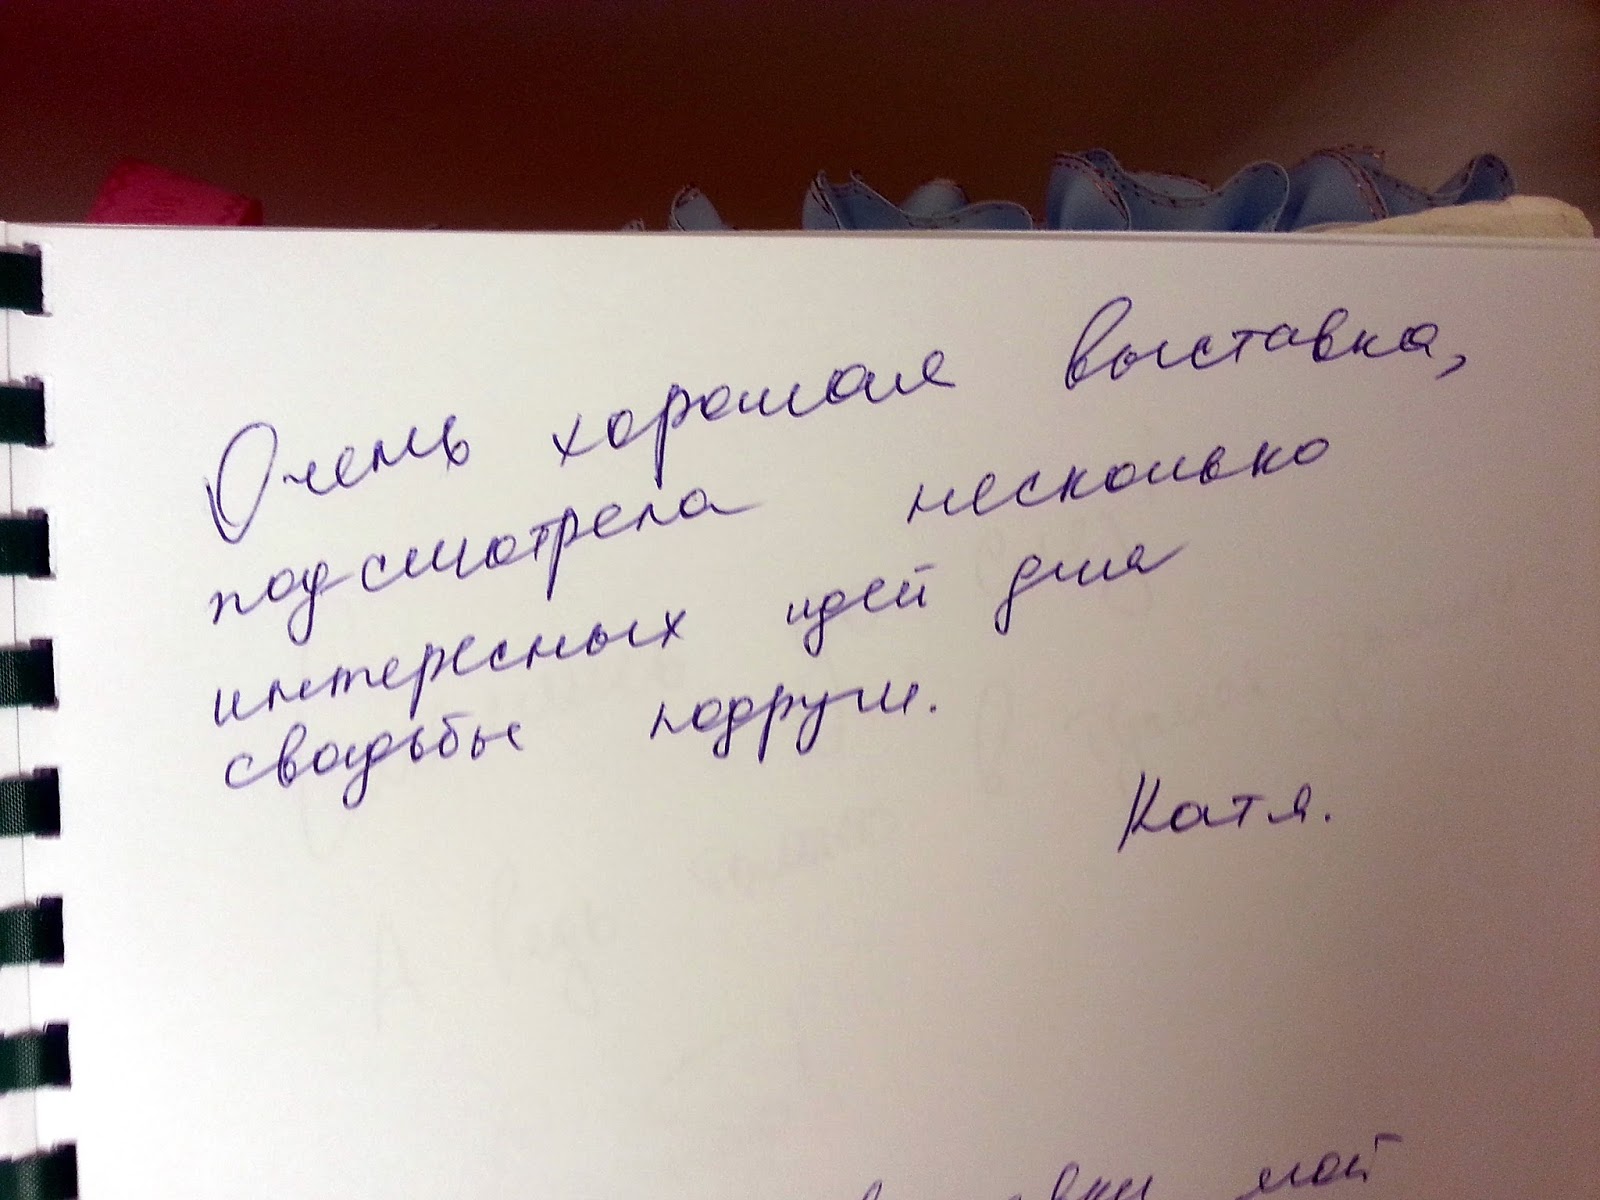 Очень хорошая выставка,
подсмотрела несколько
интересных идей для
свадьбы подруги.
Катя.